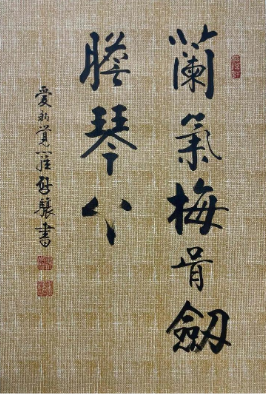 蘭氣梅骨劒
膽琴心
愛新覺羅啟驤書